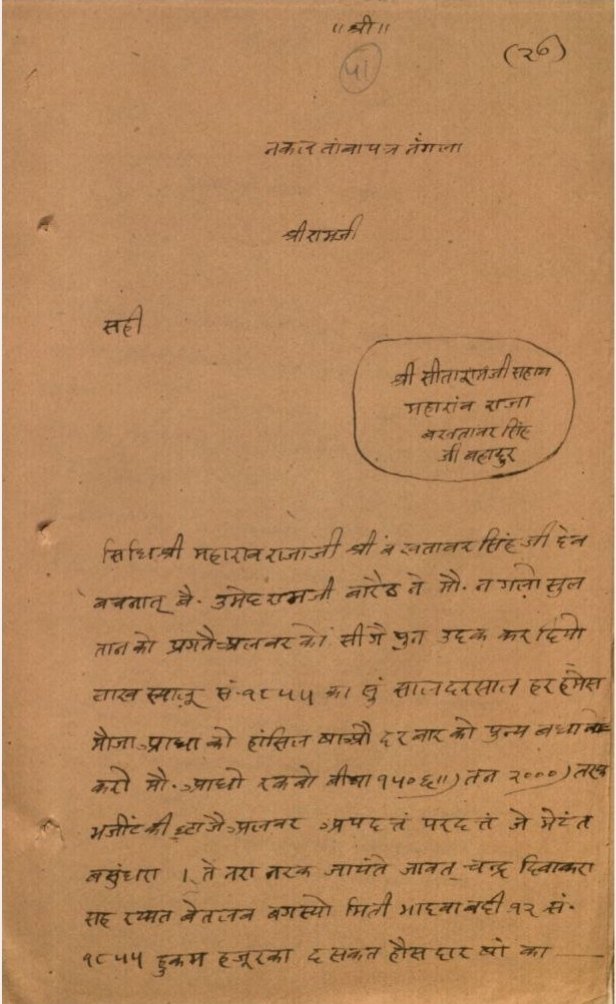 ॥ श्री ॥
५१
(२७)
नकल तांबापत्र नँगला
श्रीरामजी
सही
श्री सीतारामजी सहाय
महाराव राजा
बखतावर सिंह
जी बहादुर
सिधि श्री महाराव राजाजी श्री बखतावर सिंह जी देव
बचनात् बै. उमेदरामजी बारैठ ने मौ. नगलो सुल
तान को प्रगनै अलवर को सीगै पुन उदक कर दियो
साख स्यालू सं. १८५५ का सुं सालदरसाल हर हमेस
मौजा आधा को हांसिल षाओ दरबार को पुन्य बधा
करो मौ. आधो रकबो बीघा १५०६॥) तन २०००) तरफ
अलवर अपदत्तं परदत्तं जे मेटंत
बसुंधरा । ते नरा नरक जायंते जावत् चन्द्र दिवाकरा
सह रय्यत बेतलब बगस्यो मिती भादवा बदी १२ सं.
१८५५ हुकम हजूरका दसकत हौसदार षां का